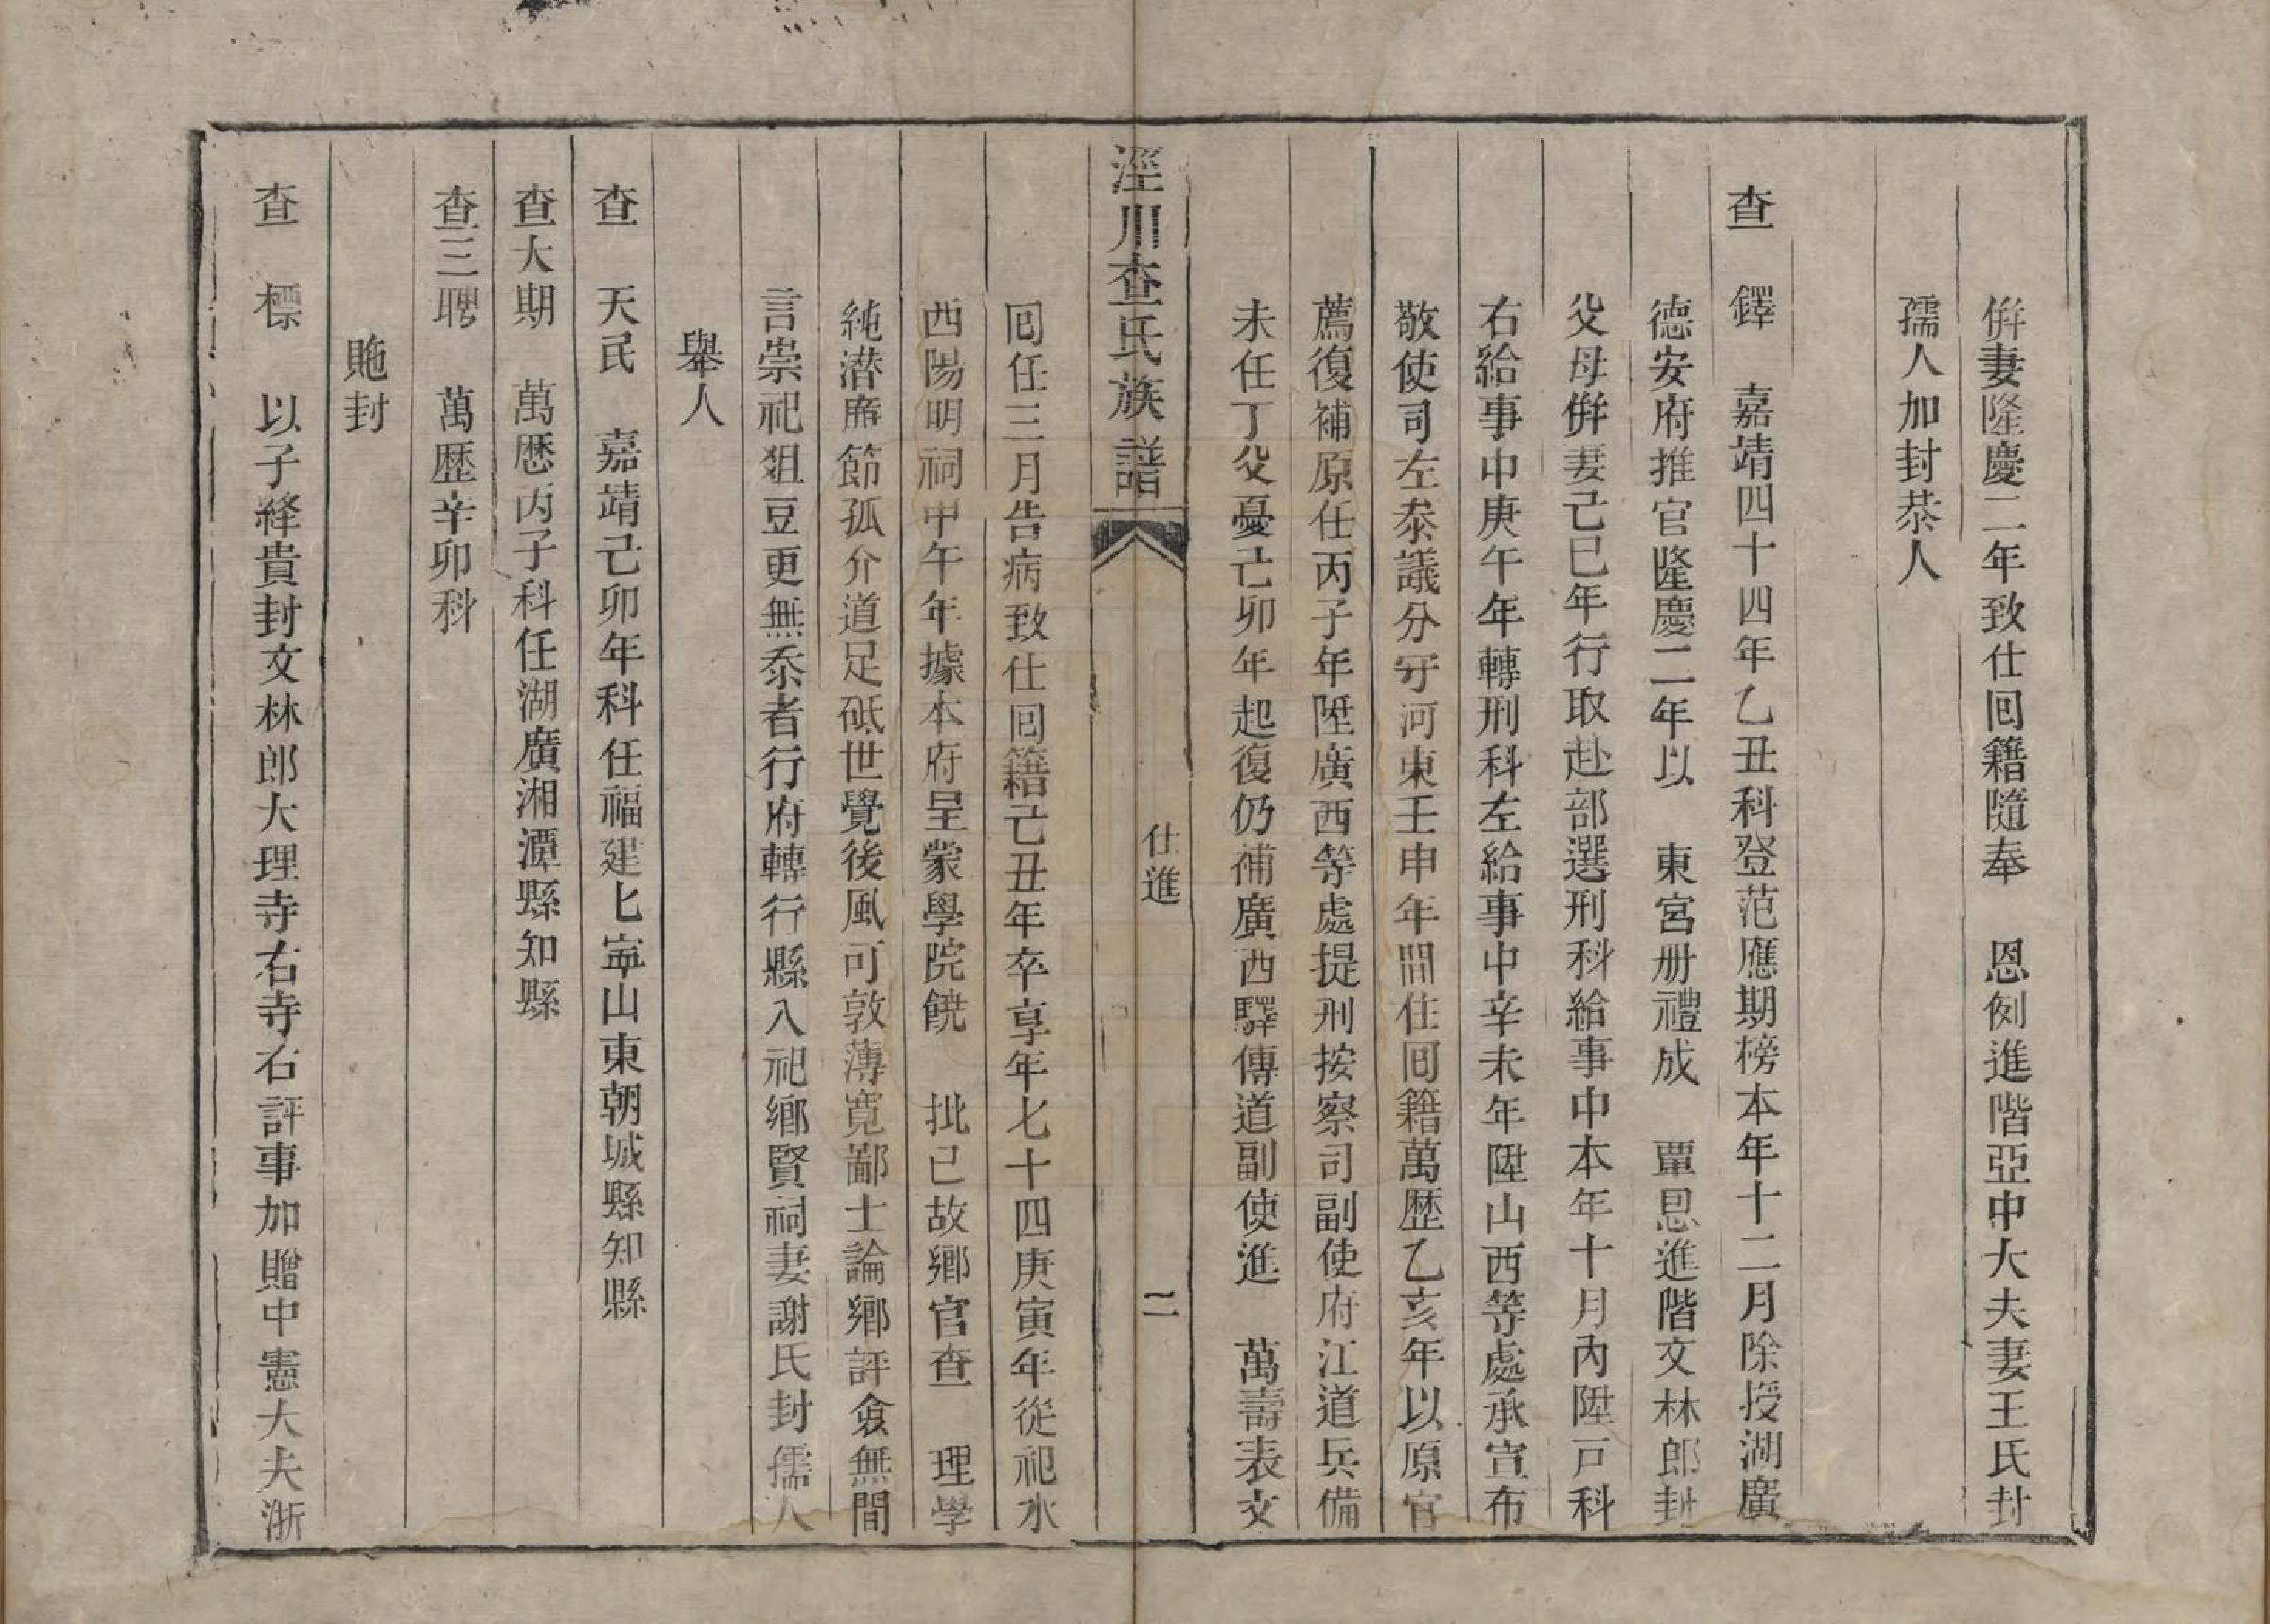 併妻隆慶二年致仕囘籍隨奉　恩例進階亞中大夫妻王氏封
孺人加封恭人
查　鐸　嘉靖四十四年乙丑科登范應期榜本年十二月除授湖廣
德安府推官隆慶二年以　東宮册禮成　覃恩進階文林郎封
父母併妻己巳年行取赴部選刑科給事中本年十月內陞戸科
右給事中庚午年轉刑科左給事中辛未年陞山西等處承宣布
敬使司左叅議分守河東壬申年閒住囘籍萬歴乙亥年以原官
薦復補原任丙子年陞廣西等處提刑按察司副使府江道兵備
未任丁父憂己卯年起復仍補廣西驛傳道副使進　萬壽表文
涇川查氏族譜　仕進　二
囘任三月告病致仕囘籍己丑年卒享年七十四庚寅年從祀水
西陽明祠甲午年據本府呈蒙學院饒　批已故鄉官查　理學
純潜㢘節孤介道足砥世覺後風可敦薄寬鄙士論鄉評僉無間
言崇祀爼豆更無忝者行府轉行縣入祀鄉賢祠妻謝氏封孺人
舉人
查　天民　嘉靖己卯年科任福建七寜山東朝城縣知縣
查大期　萬厯丙子科任湖廣湘潭縣知縣
查三聘　萬歴辛卯科
貤封
查　標　以子絳貴封文林郎大理寺右寺右評事加贈中憲大夫浙